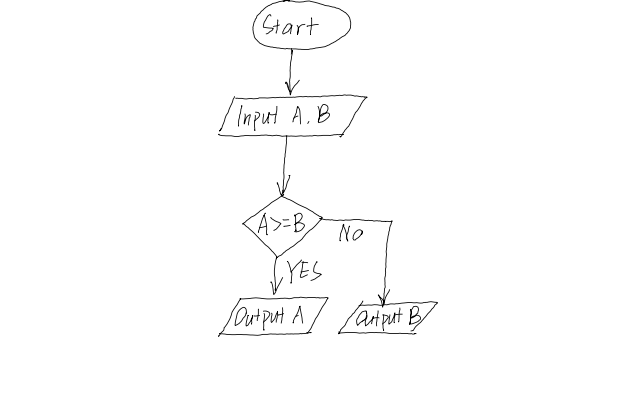 Start
Input A, B
A>=B
NO
YES
Output A
Output B